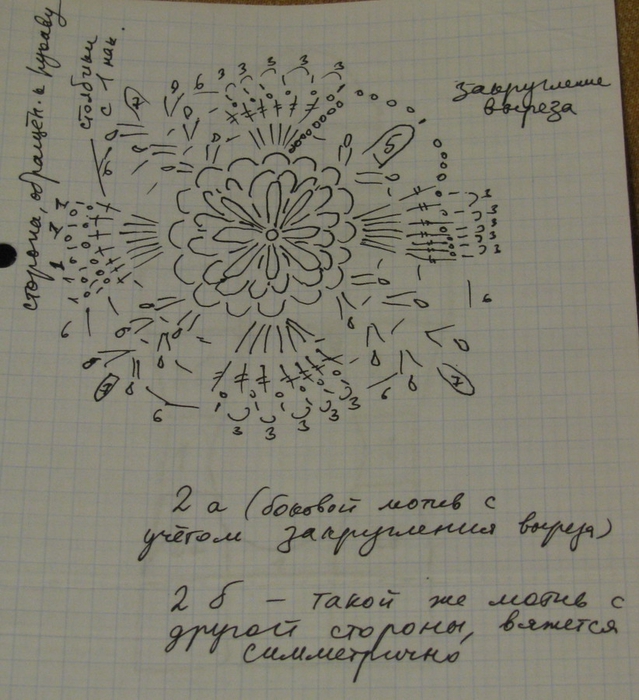 сторона, обращён. к рукаву
столбики
с 1 нак.
закругление
выреза
6 3 3 3 3 3
7
5
3
3
3
3
3
6
1 1 1
1 1 1
6
6
7
7
6
6
3 3 3 3 3
2 а (боковой мотив с
учётом закругления выреза)
2 б – такой же мотив с
другой стороны, вяжется
симметрично